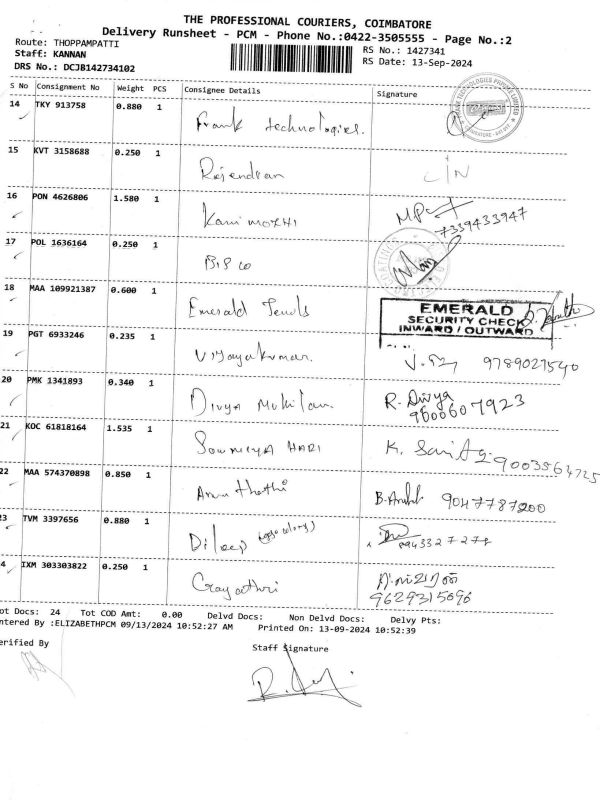 THE PROFESSIONAL COURIERS, COIMBATORE
Delivery Runsheet - PCM - Phone No.:0422-3505555 - Page No.:2
Route: THOPPAMPATTI RS No.: 1427341
Staff: KANNAN RS Date: 13-Sep-2024
DRS No.: DCJB142734102
S No Consignment No Weight PCS Consignee Details Signature
14 TKY 913758 0.880 1 Frank technologies.
15 KVT 3158688 0.250 1 Rajendran
16 PON 4626806 1.580 1 Kani mozhi 7339433947
17 POL 1636164 0.250 1
18 MAA 109921387 0.600 1 Emerald
EMERALD
SECURITY CHECK
INWARD / OUTWARD
19 PGT 6933246 0.235 1 Vijayakumar. 9789027540
20 PMK 1341893 0.340 1 Divya Mukilan R. Divya
9600607923
21 KOC 61818164 1.535 1 Sowmiya HARI
22 MAA 574370898 0.850 1 9047787200
23 TVM 3397656 0.880 1 Dileep
24 IXM 303303822 0.250 1 Gayathri
9629315096
ot Docs: 24 Tot COD Amt: 0.00 Delvd Docs: Non Delvd Docs: Delvy Pts:
ntered By :ELIZABETHPCM 09/13/2024 10:52:27 AM Printed On: 13-09-2024 10:52:39
erified By Staff Signature